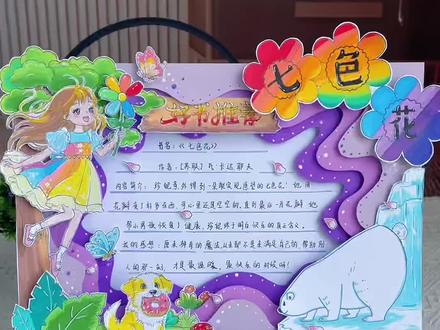 七色花
好书推荐
书名:《七色花》
作者:[苏联]瓦·卡达耶夫
内容简介:珍妮意外得到一朵能实现愿望的七色花,她用
花瓣买了好多东西,可心里还是空空的,直到最后一片花瓣,她
帮小男孩恢复了健康,珍妮终于明白快乐的真正含义。
我的感想:原来神奇的魔法,从来都不是来满足自己的,帮助别
人的那一刻,才是最温暖、最快乐的时候啊!